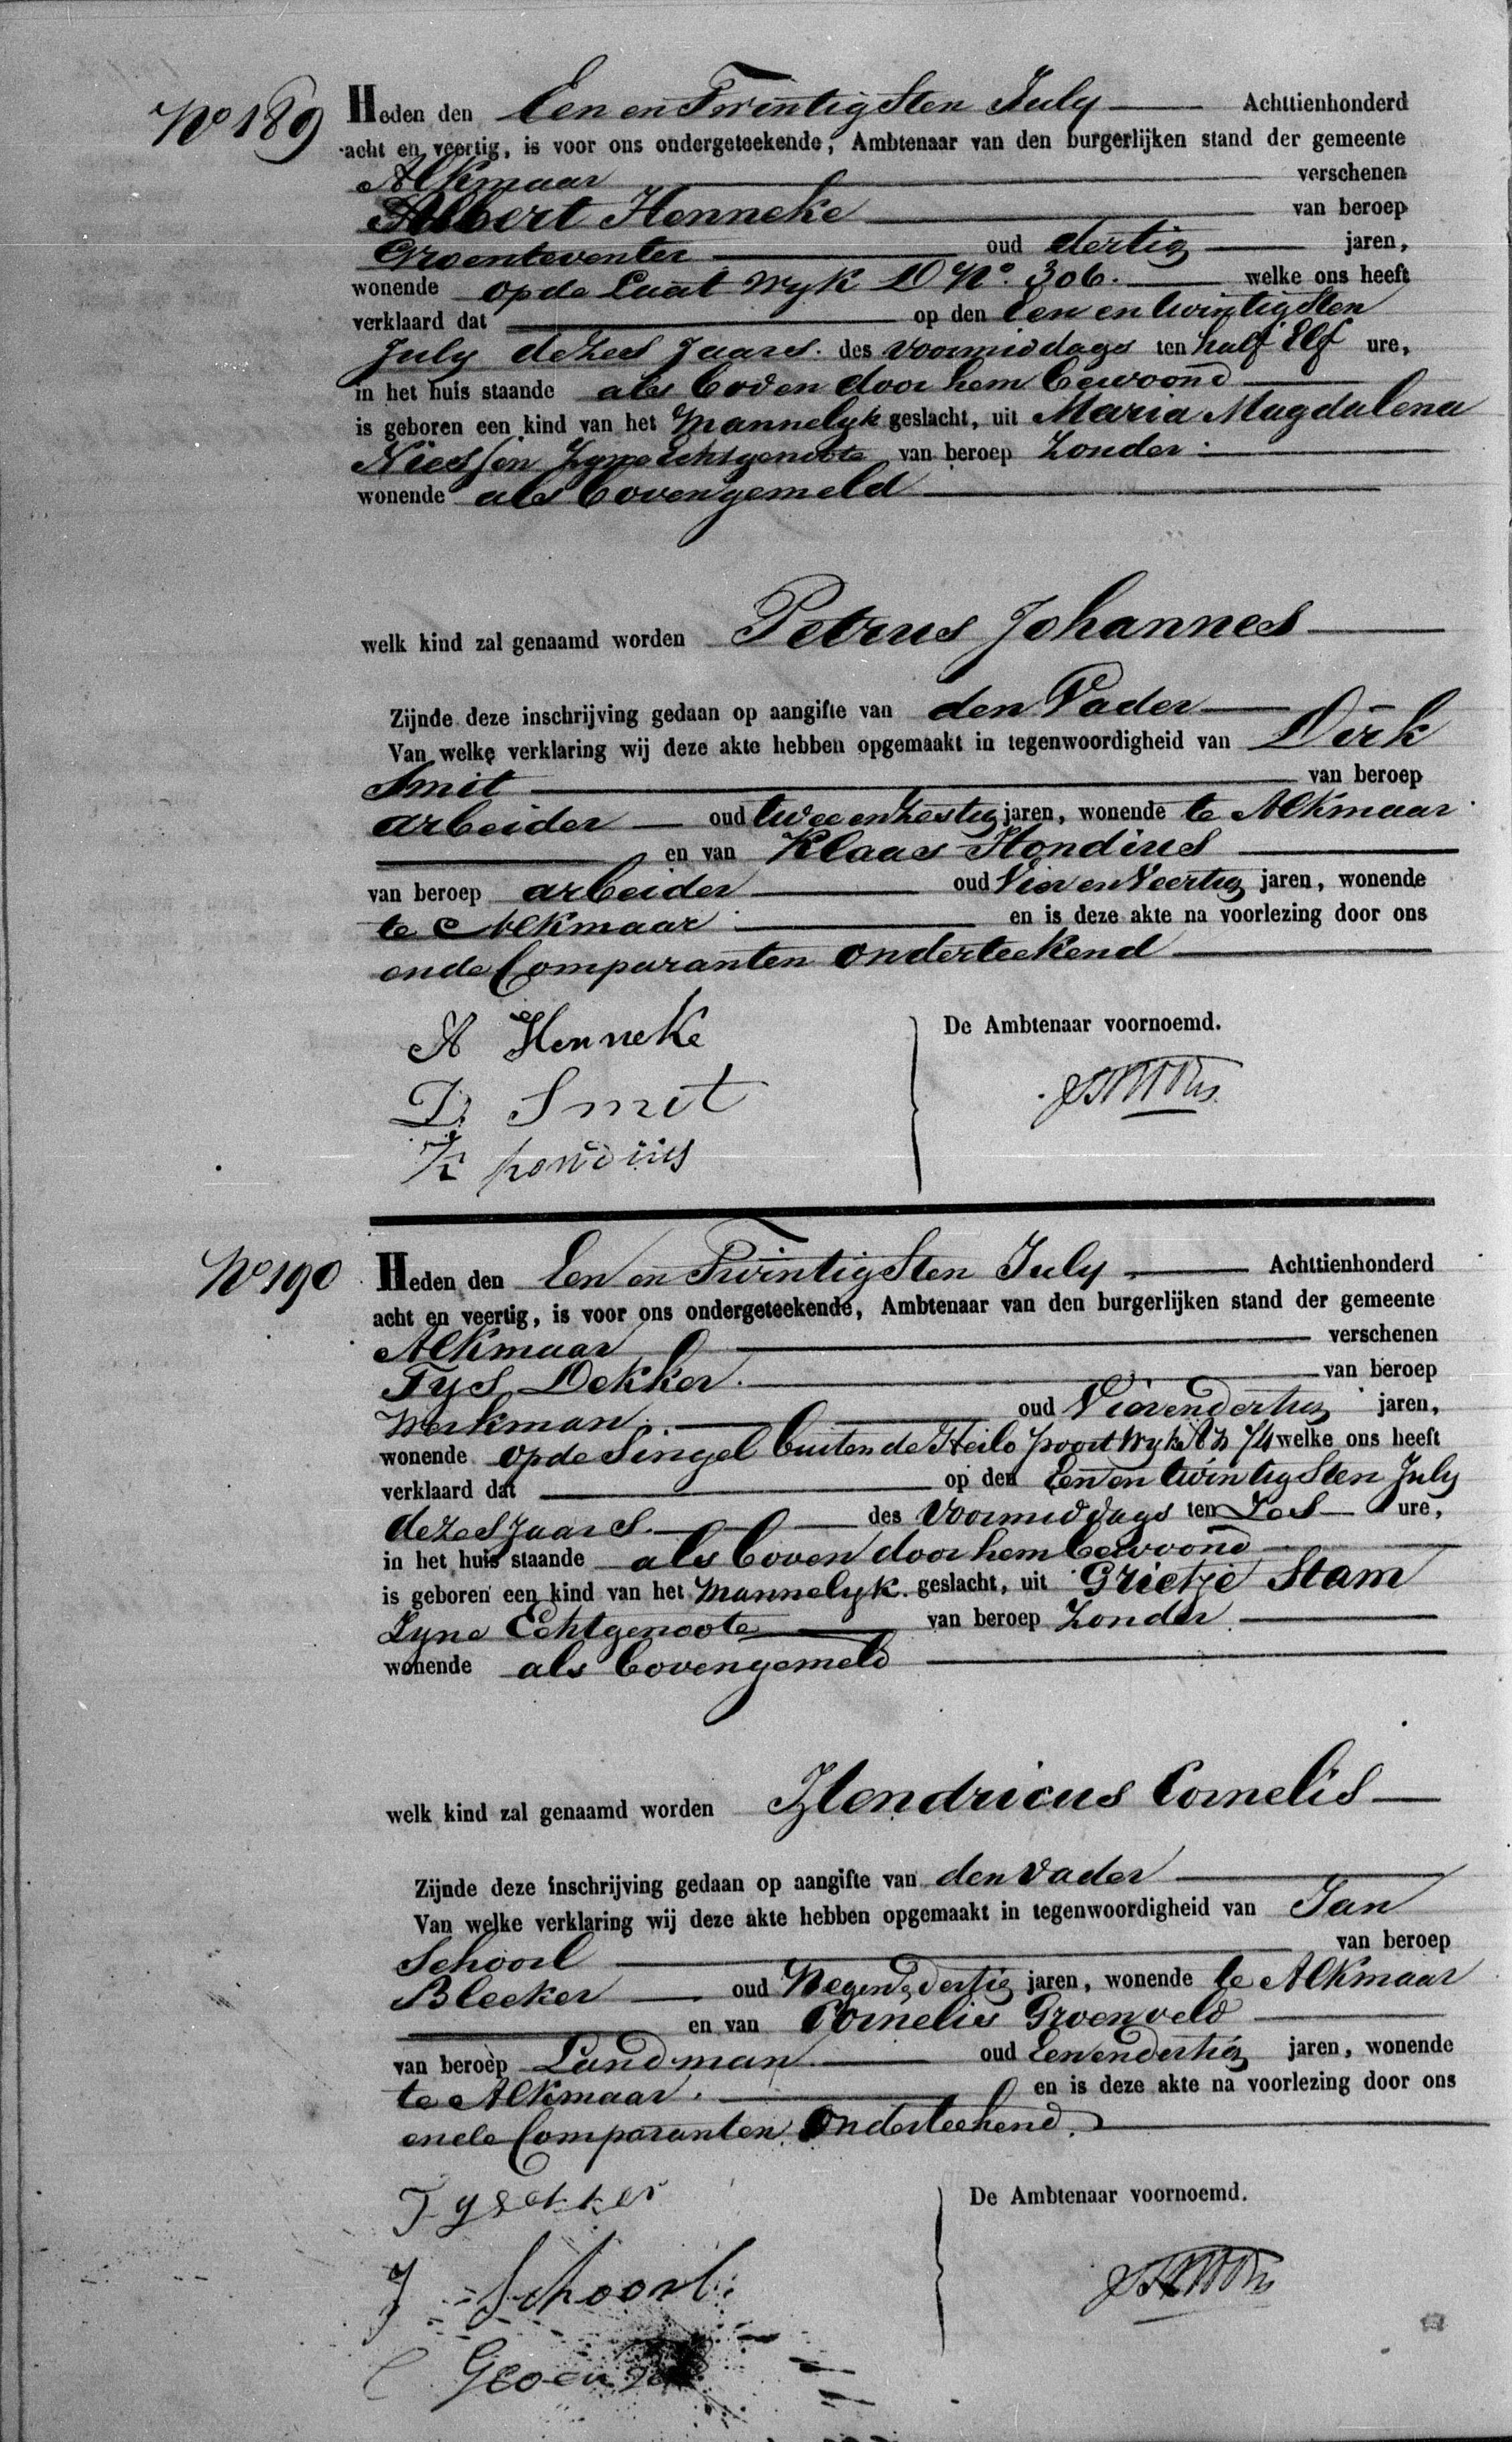 No 189
Heden den Een en Twintigsten July Achttienhonderd
acht en veertig, is voor ons ondergeteekende, Ambtenaar van den burgerlijken stand der gemeente
Alkmaar verschenen
Albert Henneke van beroep
Groenteventer oud dertig jaren,
wonende op de Laat Wyk D No. 306. welke ons heeft
verklaard dat op den Een en twintigsten
July dezes Jaars. des voormiddags ten half Elf ure,
in het huis staande als boven door hem bewoond
is geboren een kind van het Mannelyk geslacht, uit Maria Magdalena
Niessen Zyne Echtgenoote van beroep Zonder
wonende als bovengemeld
welk kind zal genaamd worden Petrus Johannes
Zijnde deze inschrijving gedaan op aangifte van den Vader
Van welke verklaring wij deze akte hebben opgemaakt in tegenwoordigheid van Dirk
Smit van beroep
arbeider oud twee en zestig jaren, wonende te Alkmaar
en van Klaas Hondius
van beroep arbeider oud Vier en Veertig jaren, wonende
te Alkmaar en is deze akte na voorlezing door ons
en de Comparanten onderteekend
De Ambtenaar voornoemd.
A Henneke
D Smit
K hondius
No 190
Heden den Een en Twintigsten July Achttienhonderd
acht en veertig, is voor ons ondergeteekende, Ambtenaar van den burgerlijken stand der gemeente
Alkmaar verschenen
Tys Dekker van beroep
Werkman oud Vier en dertig jaren,
wonende op de Singel buiten de Heilo poort Wyk 74 welke ons heeft
verklaard dat op den Een en twintigsten July
dezes Jaars des Voormiddags ten Zes ure,
in het huis staande als boven door hem bewoond
is geboren een kind van het Mannelyk geslacht, uit Grietje Stam
Zyne Echtgenoote van beroep Zonder
wonende als bovengemeld
welk kind zal genaamd worden Hendricus Cornelis
Zijnde deze inschrijving gedaan op aangifte van den Vader
Van welke verklaring wij deze akte hebben opgemaakt in tegenwoordigheid van Jan
Schoorl van beroep
Bleeker oud Negen & dertig jaren, wonende te Alkmaar
en van Cornelis Groenveld
van beroep Landman oud Een en dertig jaren, wonende
te Alkmaar. en is deze akte na voorlezing door ons
en de Comparanten onderteekend.
De Ambtenaar voornoemd.
J Schoorl
C